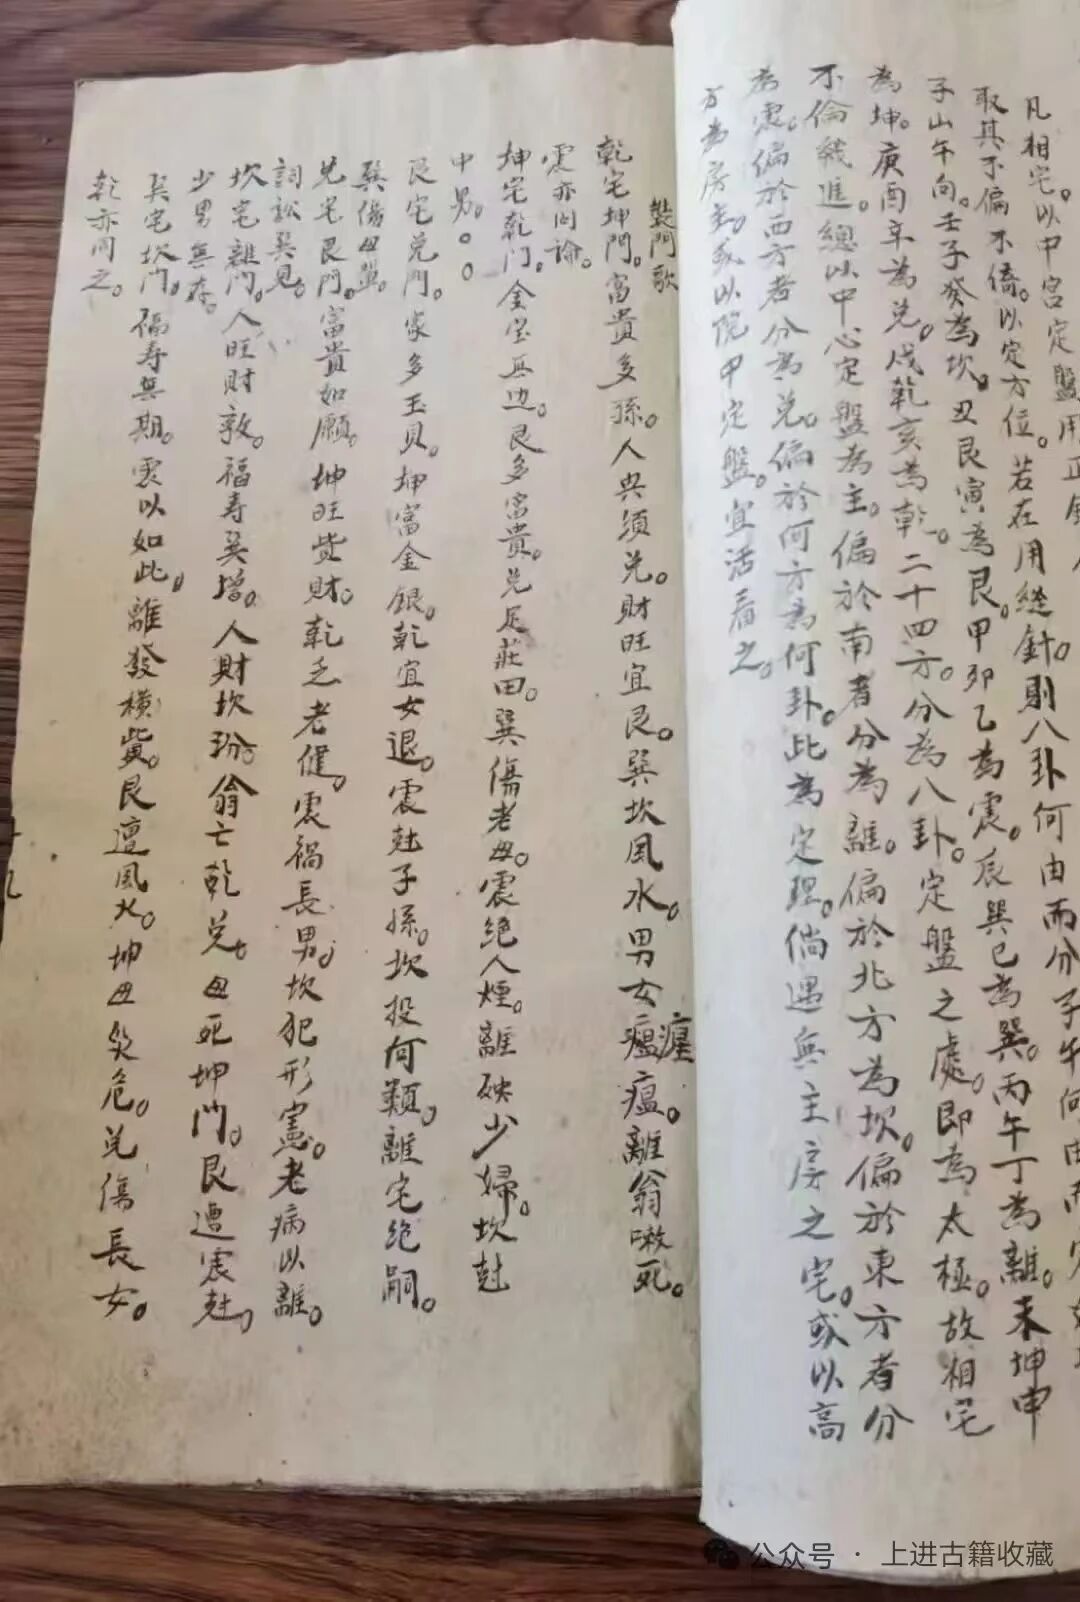 凡相宅。以中宫定盤用正針
取其不偏不倚。以定方位。若在用縫針。則八卦何由而分子午何由而定
子山午向。壬子癸為坎。丑艮寅為艮。甲卯乙為震。辰巽巳為巽。丙午丁為離。未坤申
為坤。庚酉辛為兌。戌乾亥為乾。二十四方。分為八卦。定盤之處。即為太極。故相宅
不倫幾進。總以中心定盤為主。偏於南者分為離。偏於北方為坎。偏於東方者分
為震。偏於西方者分為兌。偏於何方為何卦。此為定理。倘遇無主房之宅。或以高
方為房主。或以院中定盤。宜活看之。
門歌
乾宅坤門。富貴多孫。人興須兌。財旺宜艮。巽坎風水。男女瘟瘟。離翁嗽死。
震亦同論。
坤宅乾门。金宝無边。艮多富貴。兌足莊田。巽傷老母。震絶人煙。離殃少婦。坎尅
中男。
艮宅兌門。家多玉貝。坤富金銀。乾宜女退。震尅子孫。坎投何類。離宅絶嗣。
巽傷母
兌宅艮門。富貴如願。坤旺貲財。乾乏老健。震禍長男。坎犯形憲。老病以離。
詞訟巽見。
坎宅離門。人旺財敦。福寿巽增。人財坎玢。翁亡乾兌。母死坤門。艮遭震尅。
少男無存。
巽宅坎門。福寿無期。震以如此。離發橫貲。艮遭風火。坤母災危。兌傷長女。
乾亦同之。
公众号 · 上进古籍收藏